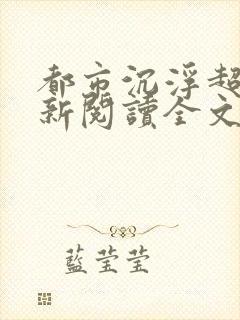 都市沉浮超
新閱讀全文
藍莹莹